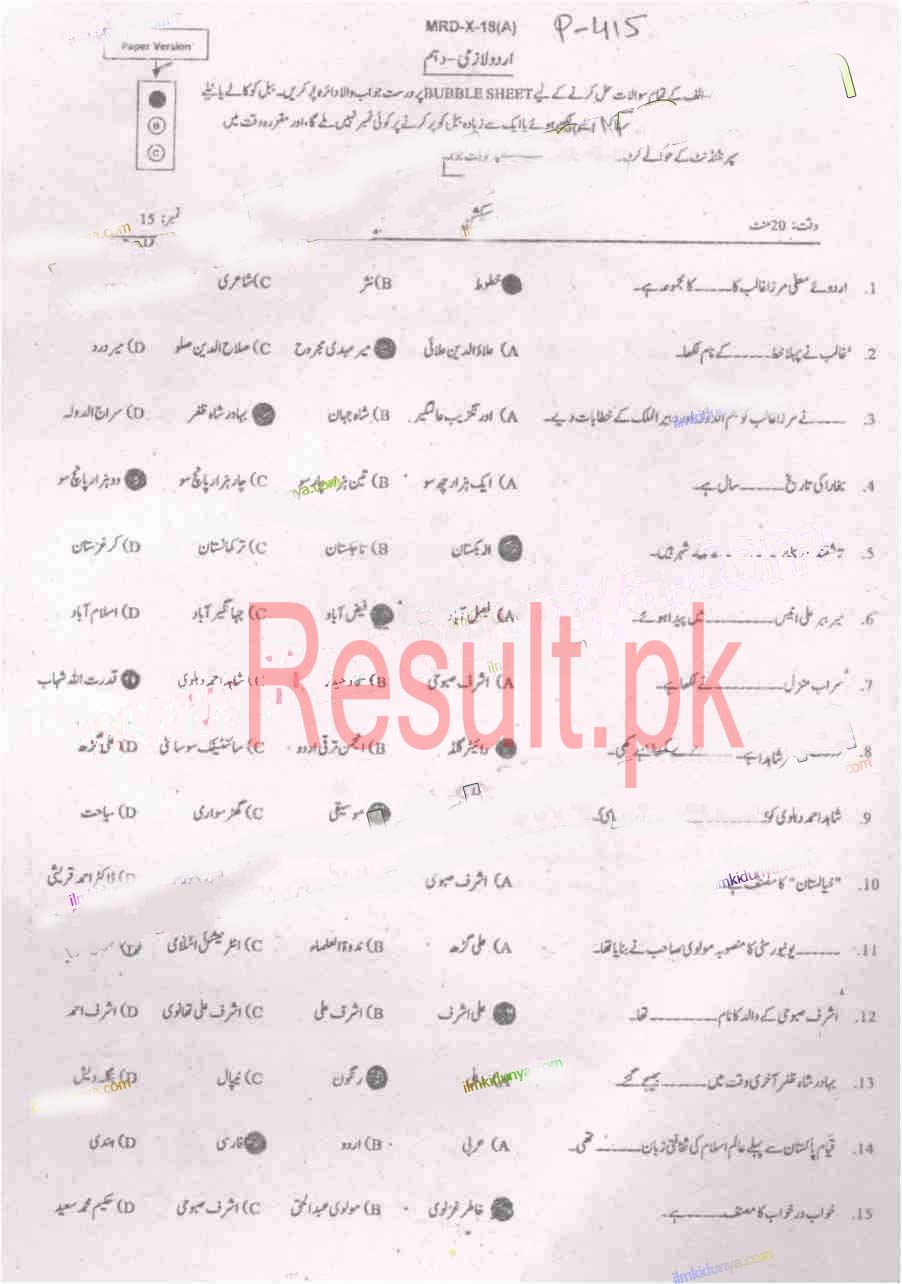 MRD-X-18(A) P-415
Paper Version
اردو لازمی - دہم
B
C
الف کے تمام سوالات حل کرنے کے لیے BUBBLE SHEET پر درست جواب والا دائرہ پُر کریں۔ ببل کو کالے یا نیلے
ہوئے یا ایک سے زیادہ ببل کو پر کرنے پر کوئی نمبر نہیں ملے گا، اور مقررہ وقت میں
سپرنٹنڈنٹ کے حوالے کریں۔
وقت: 20 منٹ نمبر: 15
1. اردوئے معلیٰ مرزا غالب کا ــــــ کا مجموعہ ہے۔ خطوط B) نثر C) شاعری
2. غالب نے پہلا خط ــــــ کے نام لکھا۔ A) علاؤالدین علائی میر مہدی مجروح C) صلاح الدین صلو D) میر درد
3. ــــــ نے مرزا غالب کو نجم الدولہ کے خطابات دیے۔ A) اورنگزیب عالمگیر B) شاہ جہان بہادر شاہ ظفر D) سراج الدولہ
4. بخارا کی تاریخ ــــــ سال ہے۔ A) ایک ہزار چھ سو B) تین ہزار چار سو C) چار ہزار پانچ سو دو ہزار پانچ سو
5. شہر ہیں۔ ازبکستان B) تاجکستان C) ترکمانستان D) کرغزستان
6. میر ببر علی انیس ــــــ میں پیدا ہوئے۔ A) فیصل آباد فیض آباد C) جہانگیر آباد D) اسلام آباد
7. سراب منزل ــــــ نے لکھا ہے۔ A) اشرف صبوحی B) شاہد احمد دہلوی قدرت اللہ شہاب
8. رائیٹر گلڈ B) انجمن ترقی اردو C) سائنٹیفک سوسائٹی D) علی گڑھ
9. شاہد احمد دہلوی کو ــــــ موسیقی C) گھڑ سواری D) سیاحت
10. "خیالستان" کا مصنف ہے A) اشرف صبوحی D) ڈاکٹر احمد قریشی
11. ــــــ یونیورسٹی کا منصوبہ مولوی صاحب نے بنایا تھا۔ A) علی گڑھ B) ندوۃ العلماء C) انٹرنیشنل اسلامی
12. اشرف صبوحی کے والد کا نام ــــــ تھا۔ علی اشرف B) اشرف علی C) اشرف علی تھانوی D) اشرف احمد
13. بہادر شاہ ظفر آخری وقت میں ــــــ بھیجے گئے۔ رنگون C) نیپال D) بنگلہ دیش
14. قیام پاکستان سے پہلے عالم اسلام کی ثقافتی زبان ــــــ تھی۔ A) عربی B) اردو فارسی D) ہندی
15. خواب در خواب کا مصنف ــــــ ہے۔ خاطر غزنوی B) مولوی عبدالحق C) اشرف صبوحی D) حکیم محمد سعید
Result.pk
ilmkidunya.com